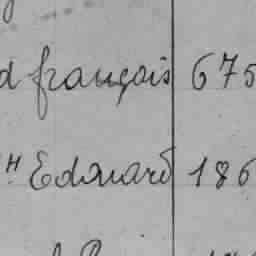 d françois 675
" Edouard 186